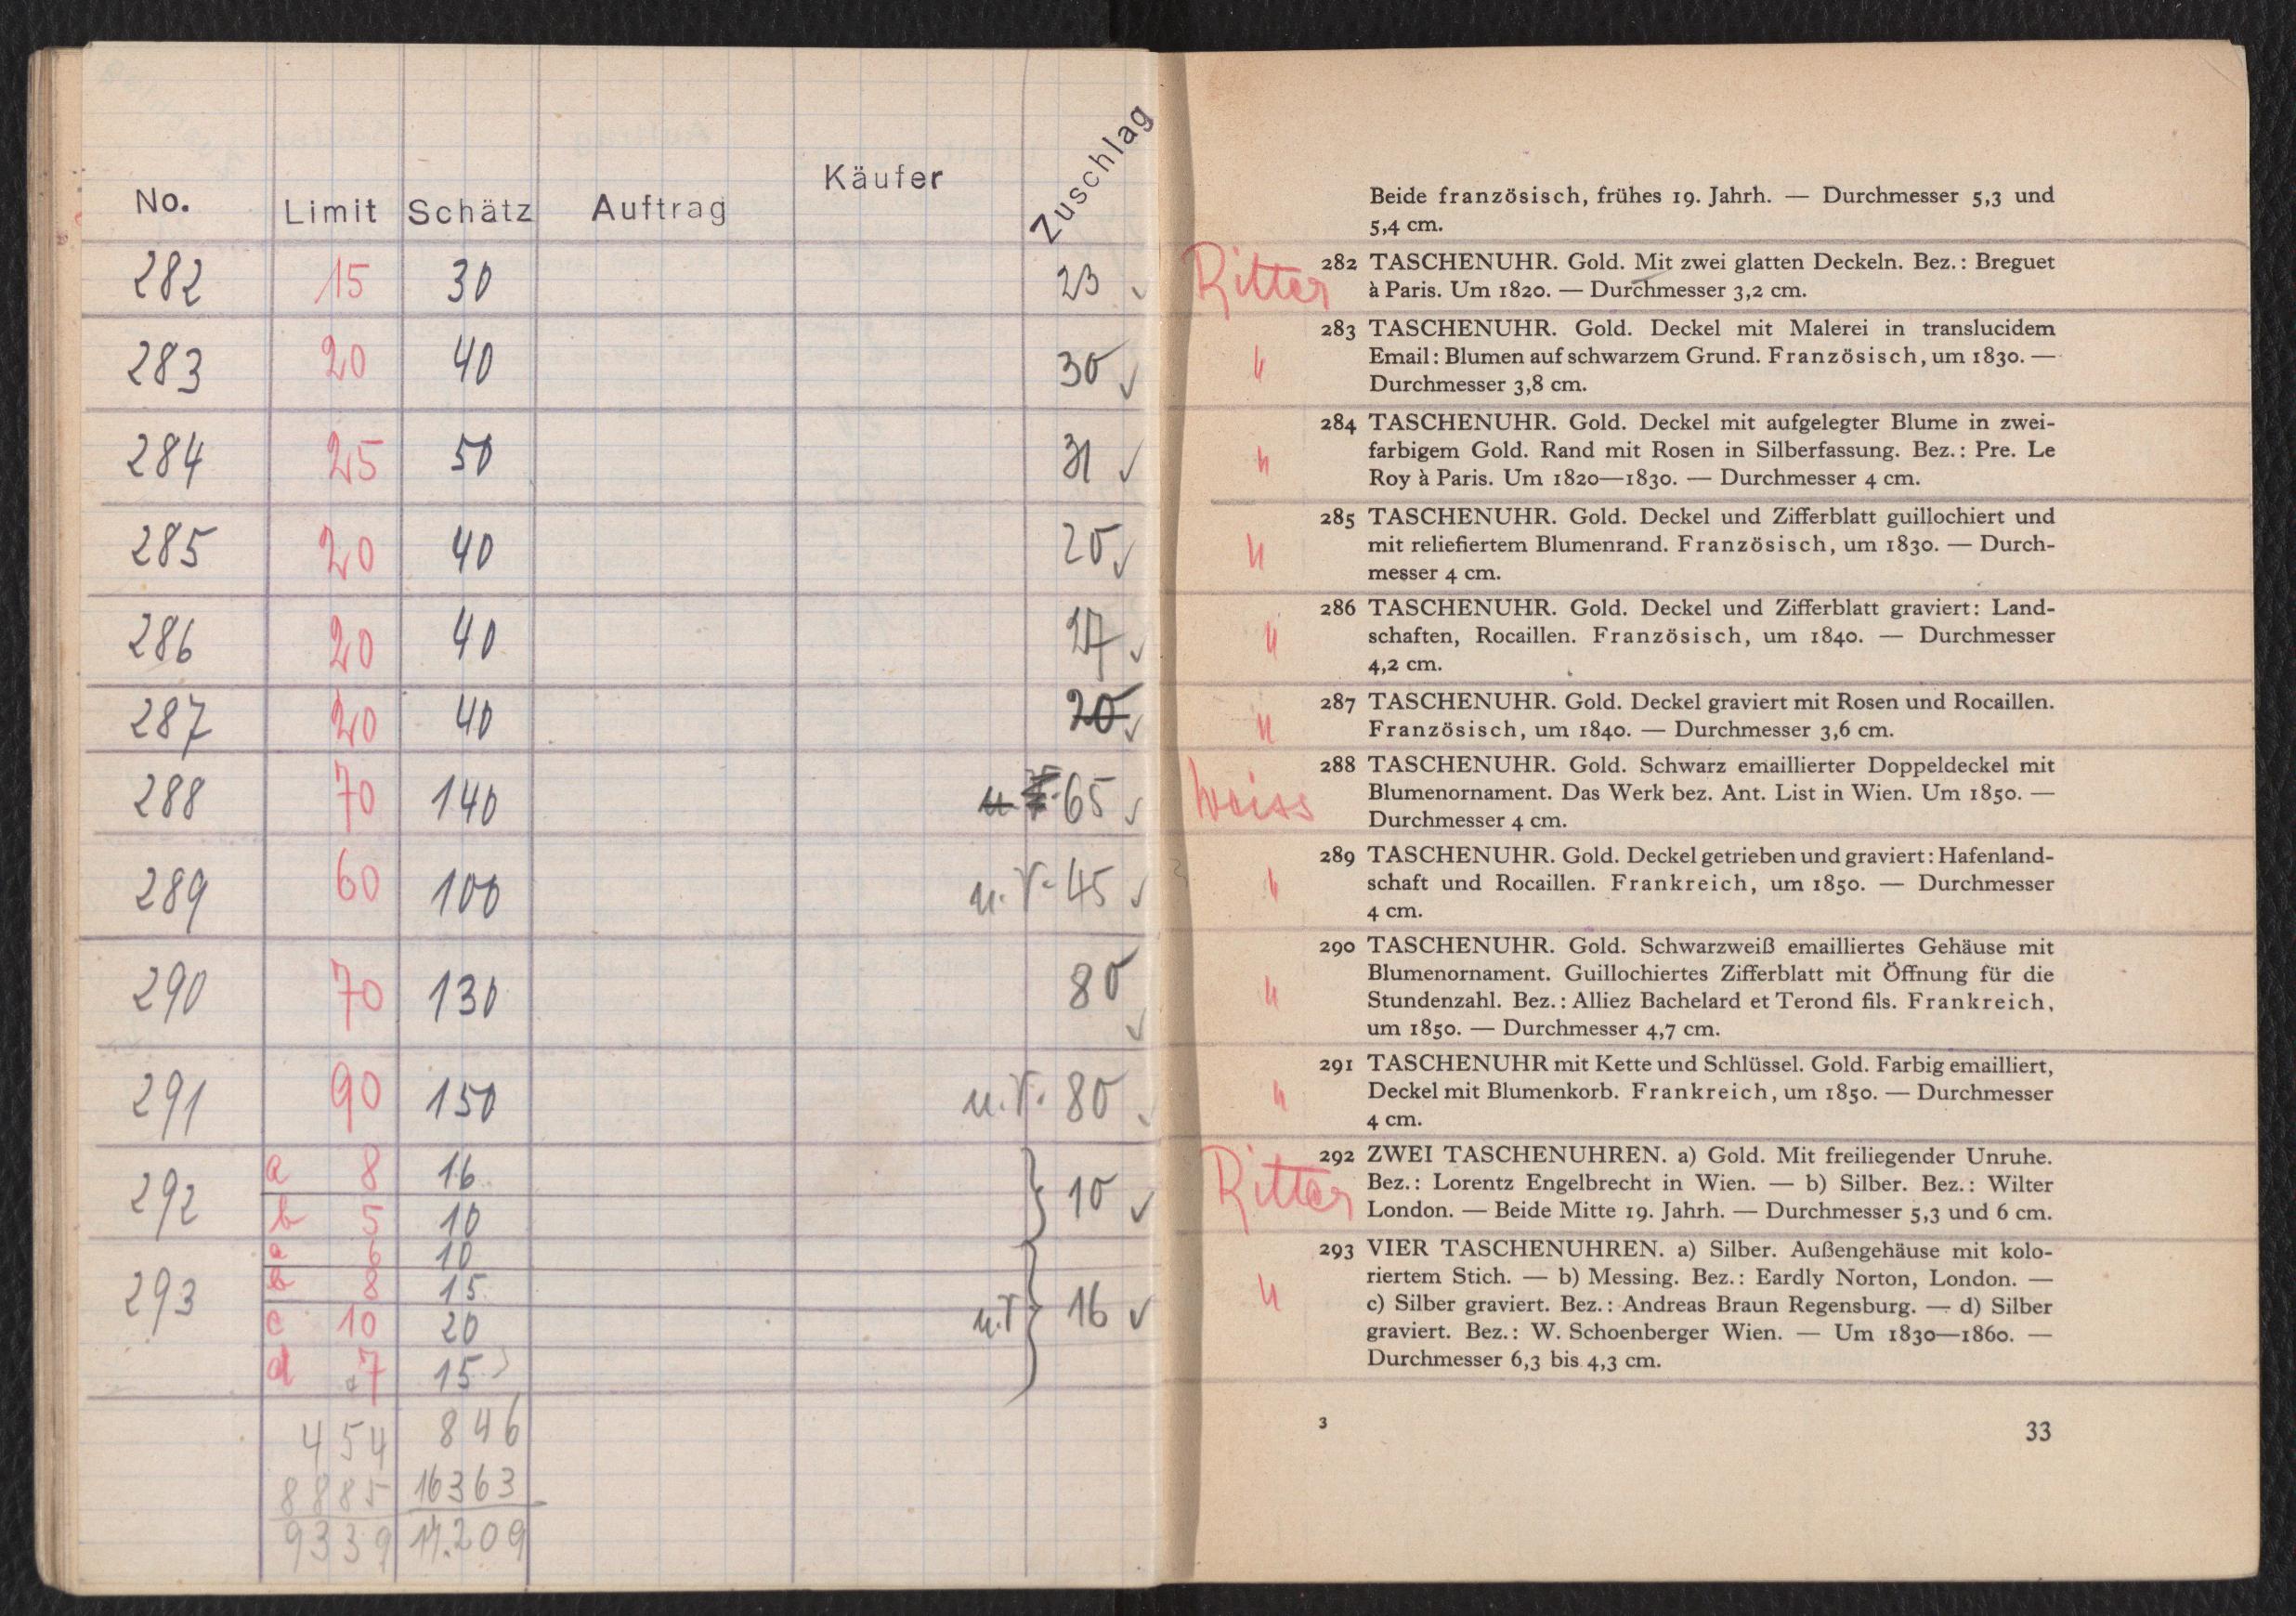 No. Limit Schätz Auftrag Käufer Zuschlag
282 15 30 23 ✓
283 20 40 30 ✓
284 25 50 31 ✓
285 20 40 20 ✓
286 20 40 17 ✓
287 20 40 20 ✓
288 70 140 65 ✓
289 60 100 u. V. 45 ✓
290 70 130 80 ✓
291 90 150 u. V. 80 ✓
292 a 8 16 } 10 ✓
b 5 10
293 a 6 10
b 8 15
c 10 20 u. V } 16 ✓
d 7 15
454 846
8885 16363
9339 17.209
Beide französisch, frühes 19. Jahrh. — Durchmesser 5,3 und
5,4 cm.
Ritter
282 TASCHENUHR. Gold. Mit zwei glatten Deckeln. Bez.: Breguet
à Paris. Um 1820. — Durchmesser 3,2 cm.
283 TASCHENUHR. Gold. Deckel mit Malerei in translucidem
" Email: Blumen auf schwarzem Grund. Französisch, um 1830. —
Durchmesser 3,8 cm.
284 TASCHENUHR. Gold. Deckel mit aufgelegter Blume in zwei-
" farbigem Gold. Rand mit Rosen in Silberfassung. Bez.: Pre. Le
Roy à Paris. Um 1820—1830. — Durchmesser 4 cm.
285 TASCHENUHR. Gold. Deckel und Zifferblatt guillochiert und
" mit reliefiertem Blumenrand. Französisch, um 1830. — Durch-
messer 4 cm.
286 TASCHENUHR. Gold. Deckel und Zifferblatt graviert: Land-
" schaften, Rocaillen. Französisch, um 1840. — Durchmesser
4,2 cm.
287 TASCHENUHR. Gold. Deckel graviert mit Rosen und Rocaillen.
" Französisch, um 1840. — Durchmesser 3,6 cm.
288 TASCHENUHR. Gold. Schwarz emaillierter Doppeldeckel mit
Weiss Blumenornament. Das Werk bez. Ant. List in Wien. Um 1850. —
Durchmesser 4 cm.
289 TASCHENUHR. Gold. Deckel getrieben und graviert: Hafenland-
" schaft und Rocaillen. Frankreich, um 1850. — Durchmesser
4 cm.
290 TASCHENUHR. Gold. Schwarzweiß emailliertes Gehäuse mit
Blumenornament. Guillochiertes Zifferblatt mit Öffnung für die
" Stundenzahl. Bez.: Alliez Bachelard et Terond fils. Frankreich,
um 1850. — Durchmesser 4,7 cm.
291 TASCHENUHR mit Kette und Schlüssel. Gold. Farbig emailliert,
" Deckel mit Blumenkorb. Frankreich, um 1850. — Durchmesser
4 cm.
292 ZWEI TASCHENUHREN. a) Gold. Mit freiliegender Unruhe.
Ritter Bez.: Lorentz Engelbrecht in Wien. — b) Silber. Bez.: Wilter
London. — Beide Mitte 19. Jahrh. — Durchmesser 5,3 und 6 cm.
293 VIER TASCHENUHREN. a) Silber. Außengehäuse mit kolo-
riertem Stich. — b) Messing. Bez.: Eardly Norton, London. —
" c) Silber graviert. Bez.: Andreas Braun Regensburg. — d) Silber
graviert. Bez.: W. Schoenberger Wien. — Um 1830—1860. —
Durchmesser 6,3 bis 4,3 cm.
3
33